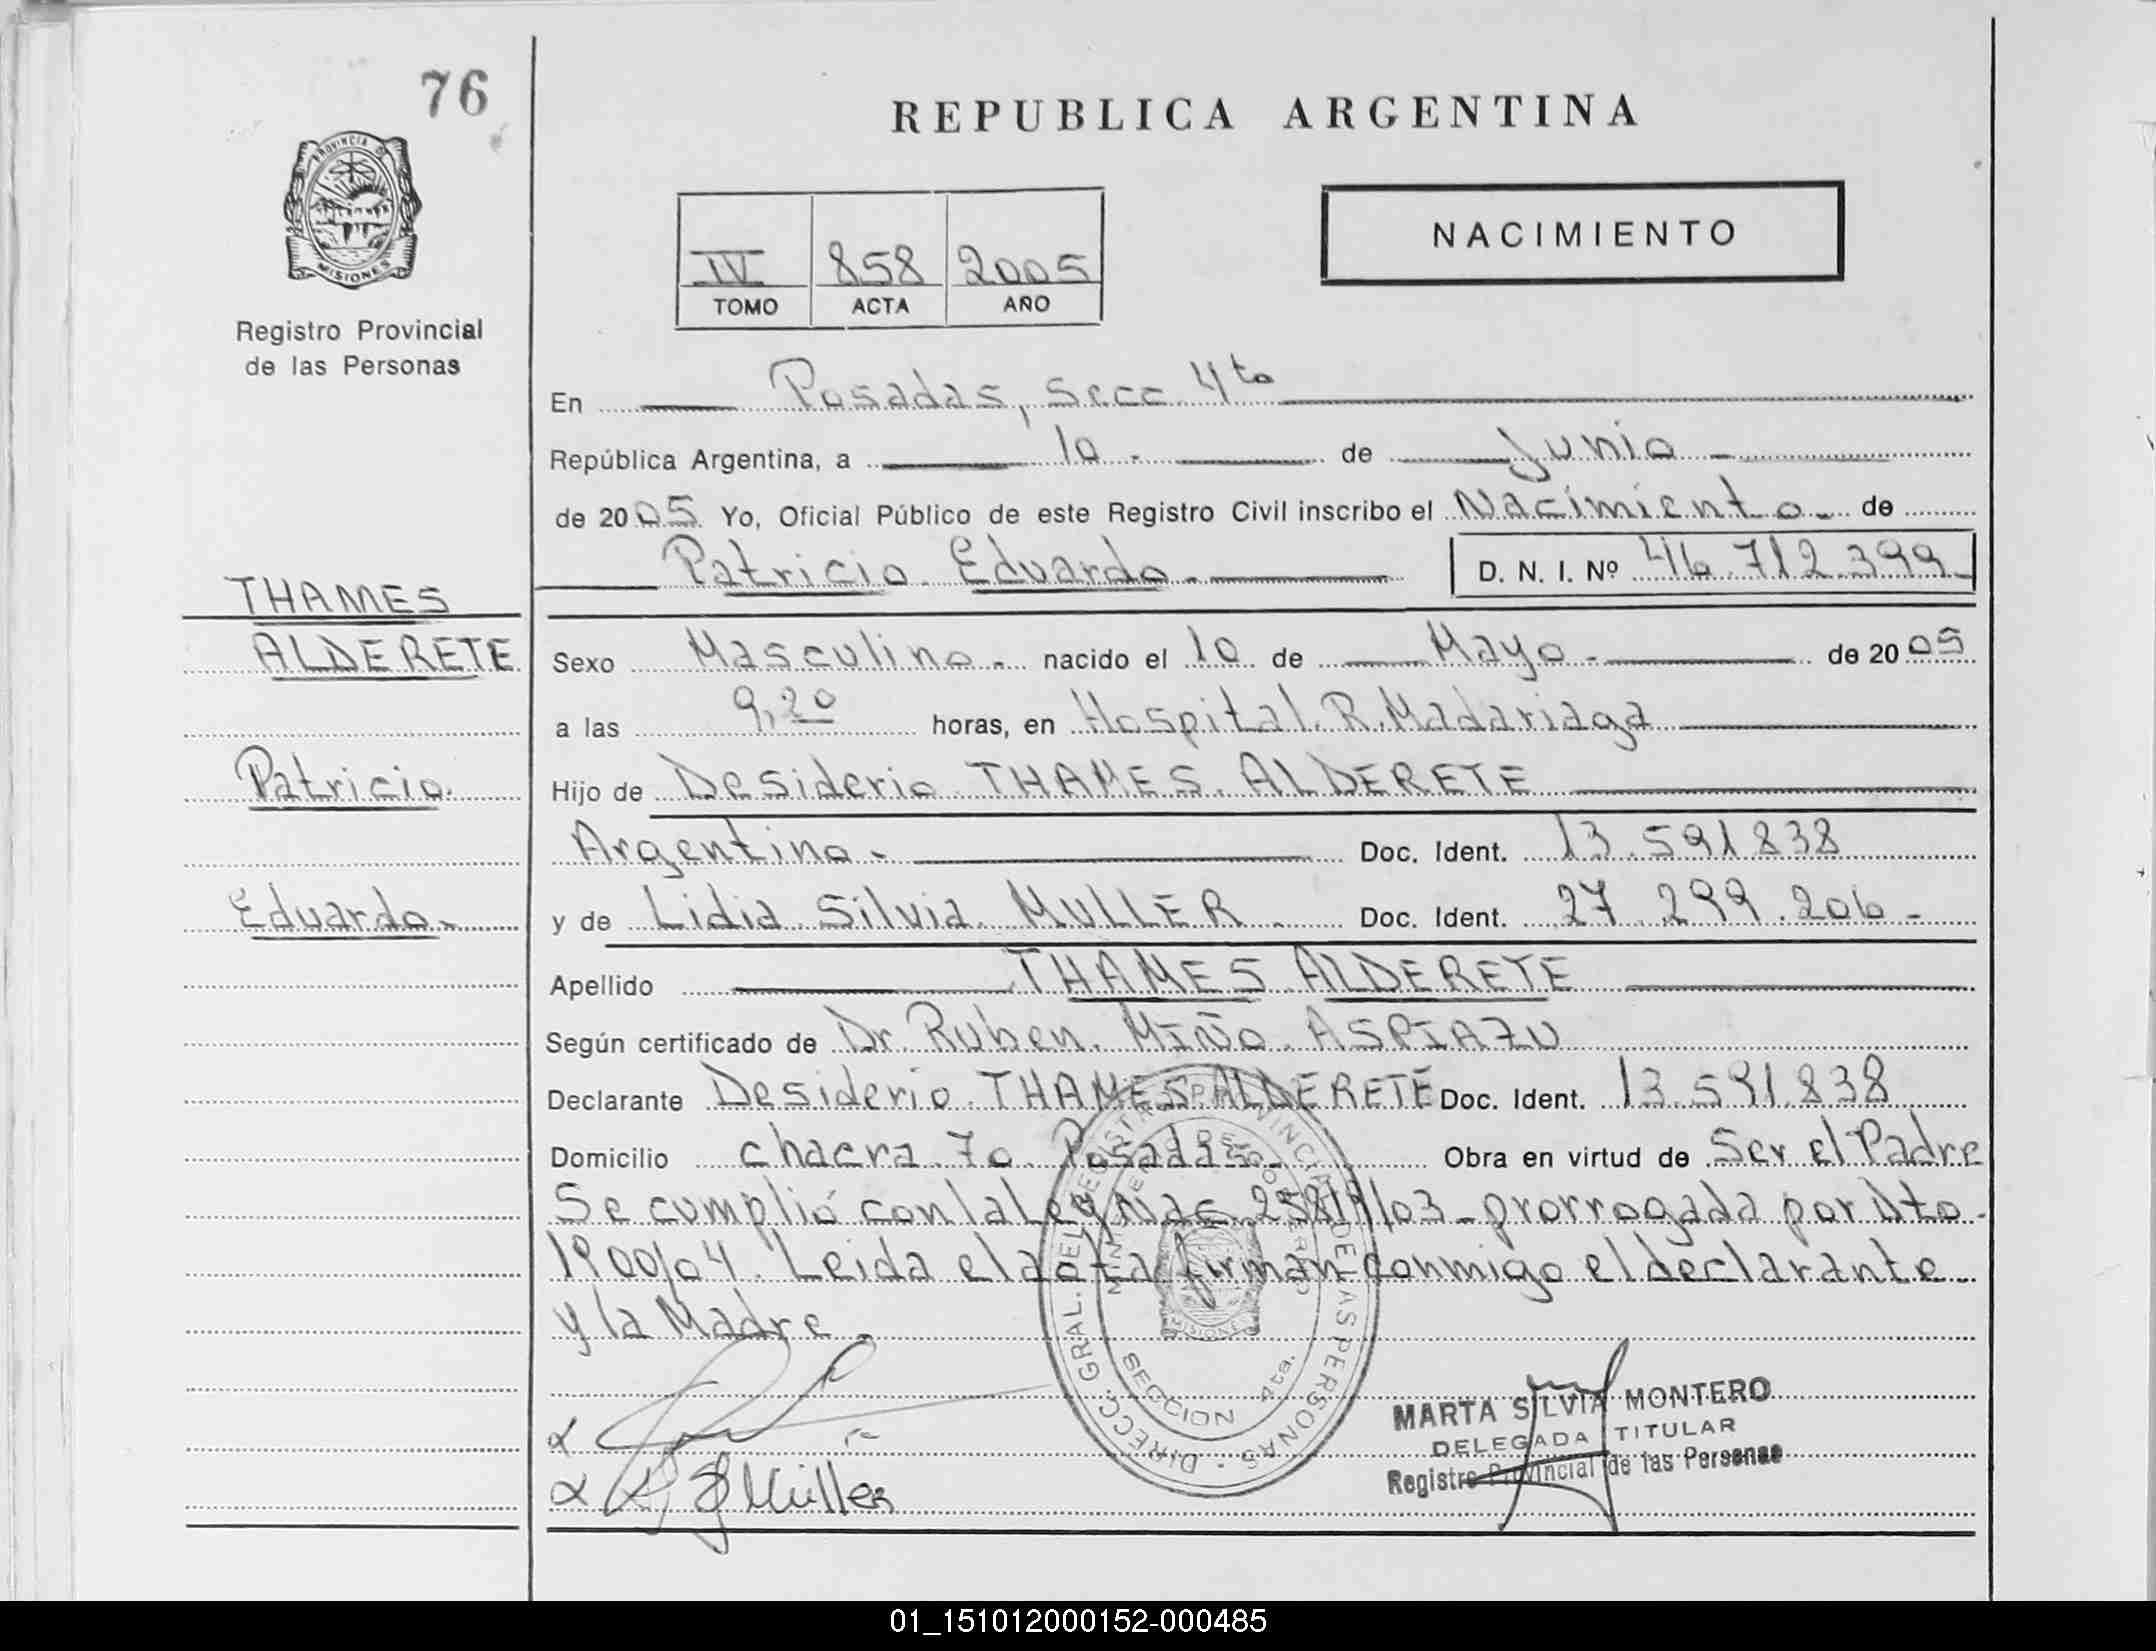 76
REPUBLICA ARGENTINA
PROVINCIA DE
MISIONES
Registro Provincial
de las Personas
NACIMIENTO
IV 858 2005
TOMO ACTA AÑO
En Posadas, Secc 4to
República Argentina, a 10 - de Junio -
de 2005 Yo, Oficial Público de este Registro Civil inscribo el Nacimiento - de
Patricio Eduardo - D. N. I. Nº 46.712.399-
THAMES
ALDERETE
Patricio
Eduardo-
Sexo Masculino - nacido el 10 de Mayo - de 2005
a las 9,20 horas, en Hospital R. Madariaga
Hijo de Desiderio THAMES ALDERETE
Argentino - Doc. Ident. 13.591.838
y de Lidia Silvia MULLER - Doc. Ident. 27.299.206 -
Apellido THAMES ALDERETE
Según certificado de Dr. Ruben MIÑO ASPIAZU
Declarante Desiderio THAMES ALDERETE Doc. Ident. 13.591.838
Domicilio chacra 70 Posadas - Obra en virtud de Ser el Padre
Se cumplió con la Ley Nac. 25819/03 - prorrogada por Dto -
1900/04. Leida el acta firman conmigo el declarante
y la Madre -
DIRECC. GRAL. DEL REGISTRO PROVINCIAL DE LAS PERSONAS
MISIONES
SECCION 4ta.
Müller
MARTA SILVIA MONTERO
DELEGADA TITULAR
Registro Provincial de las Personas
01_151012000152-000485